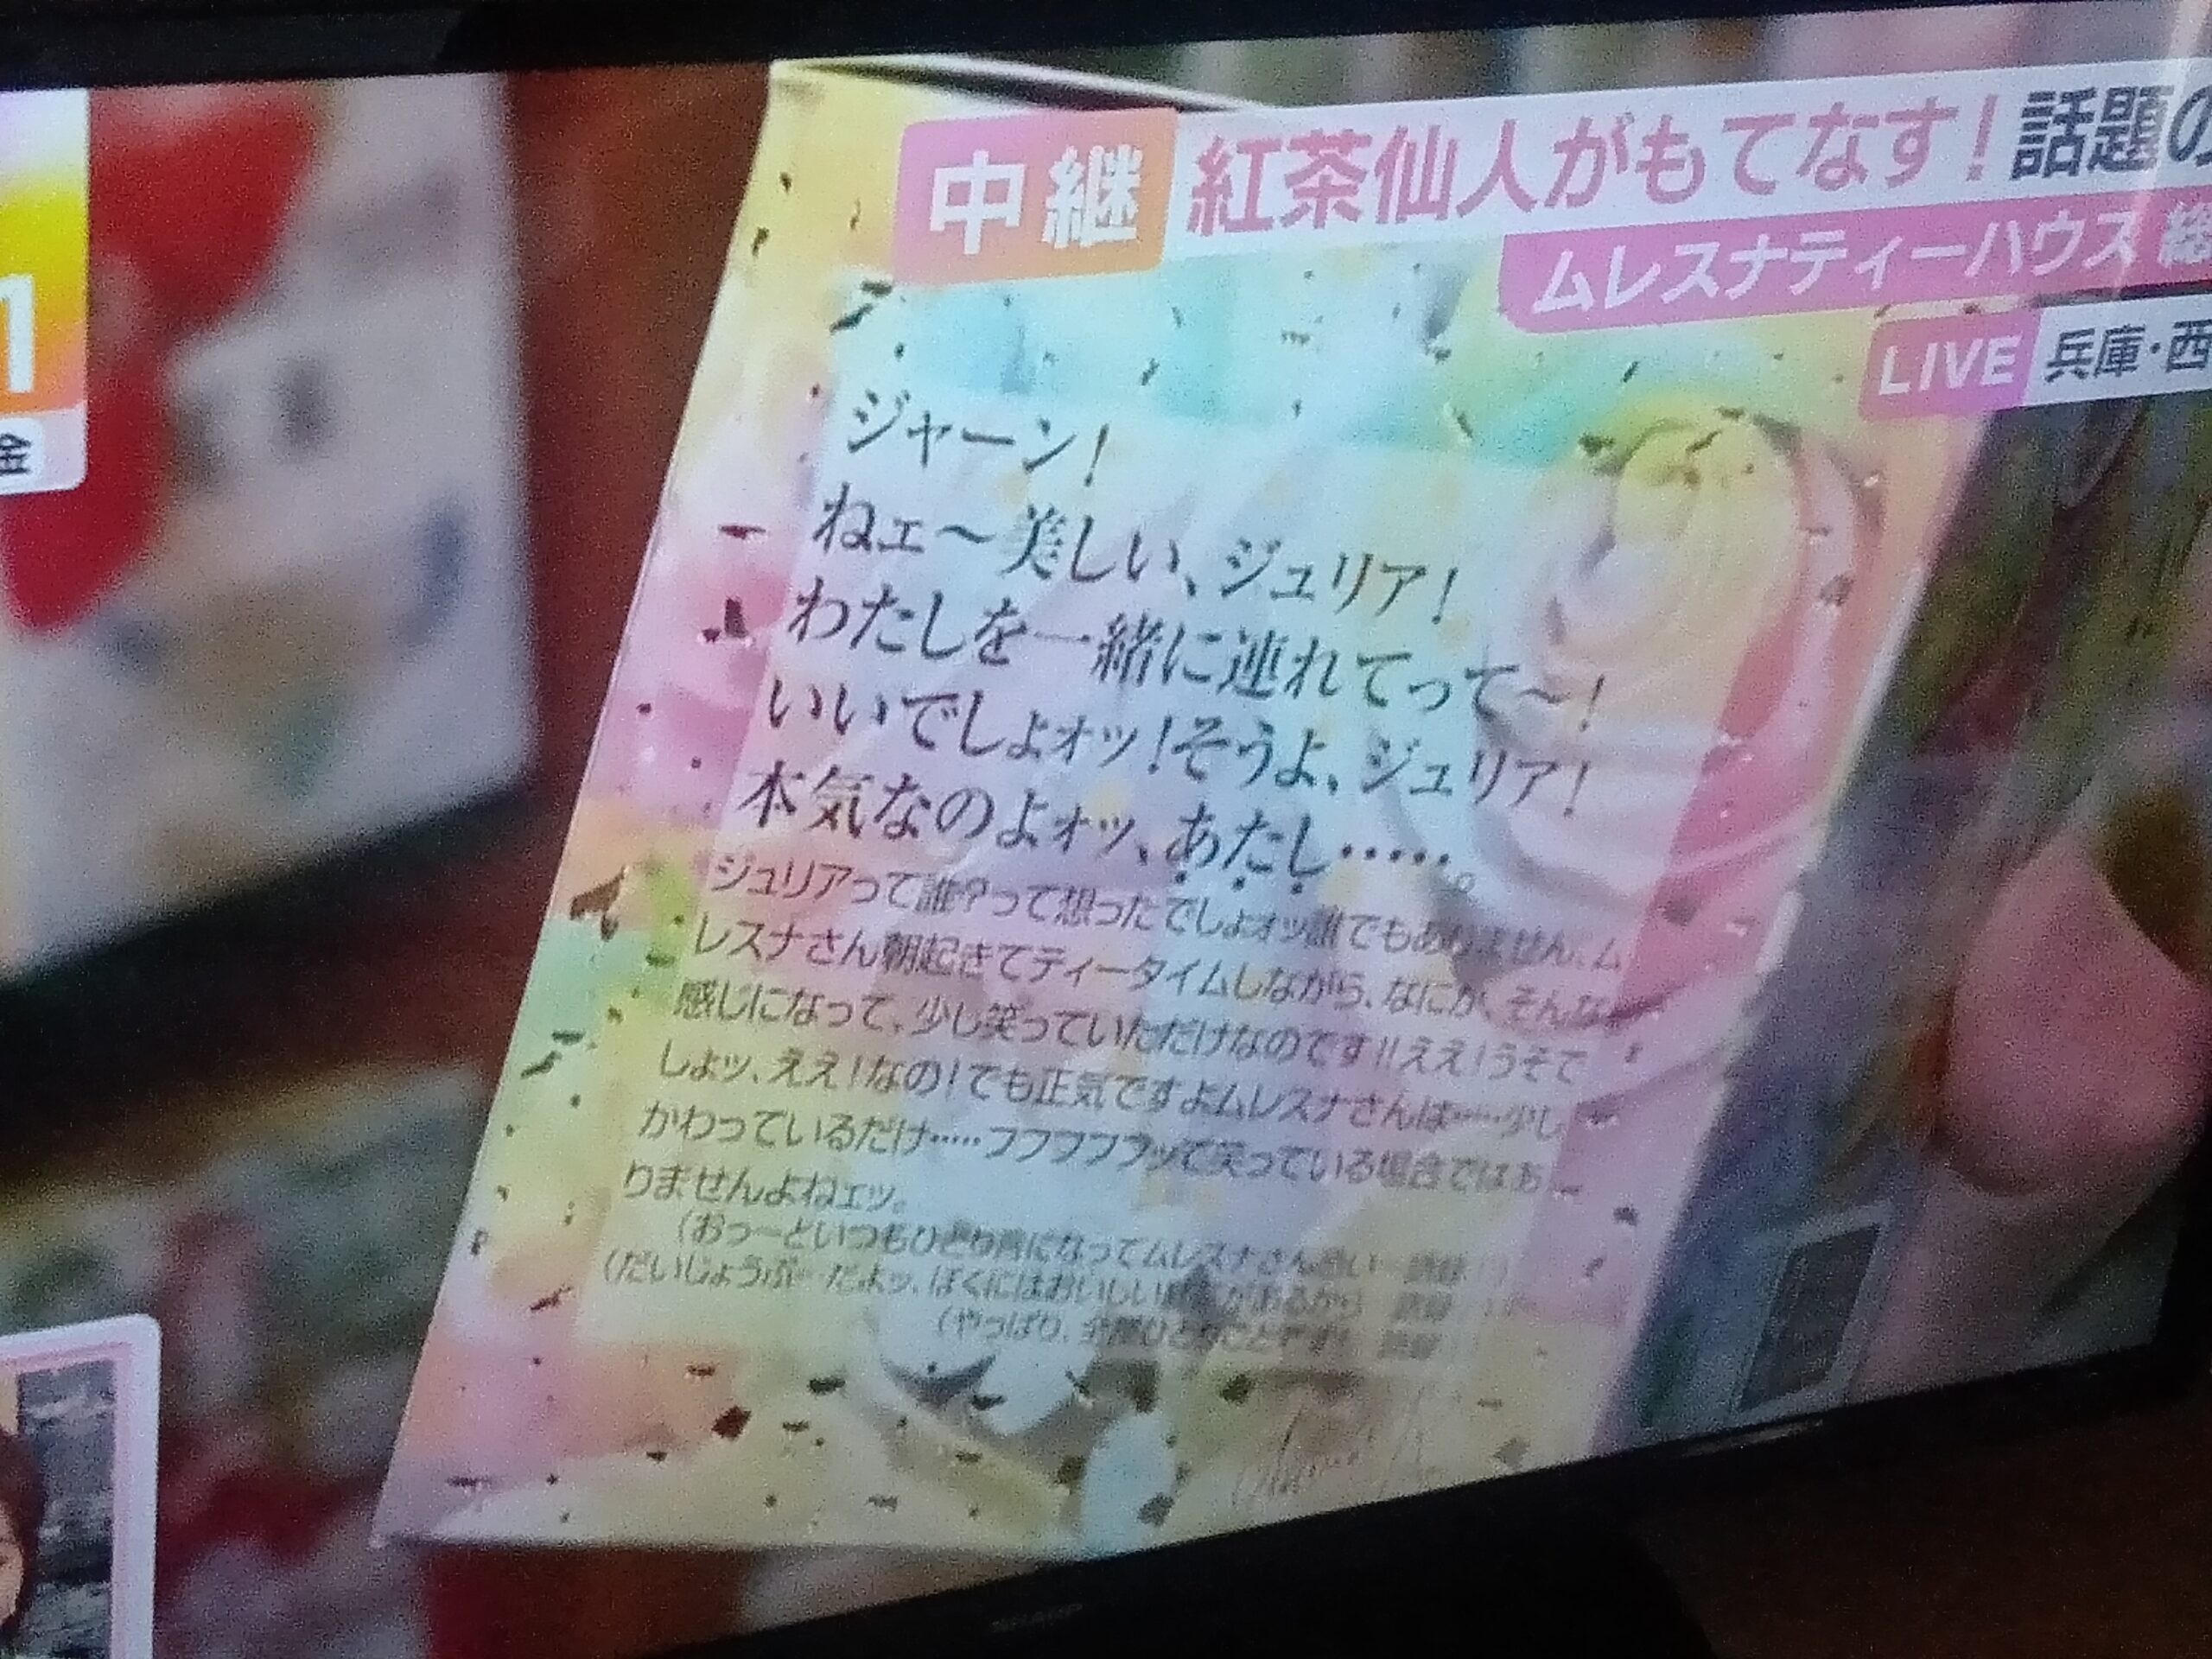 中継
紅茶仙人がもてなす!話題の
ムレスナティーハウス 総
LIVE 兵庫・西
1
金
ジャーン!
ねェ〜美しい、ジュリア!
わたしを一緒に連れてって〜!
いいでしょォッ!そうよ、ジュリア!
本気なのよォッ、あたし・・・・・。
ジュリアって誰?って想ったでしょォッ誰でもありません、ム
レスナさん朝起きてティータイムしながら、なにか、そんな
感じになって、少し笑っていただけなのです!!ええ!うそで
しょッ、ええ!なの!でも正気ですよムレスナさんは……少し
かわっているだけ……フフフフフッて笑っている場合ではあ
りませんよねェッ。
(おっーといつもひとり
になってムレスナさん
(だいじょうぶ
だよッ、ぼくにはおいしい
があるから
(やっぱり、
SHARP